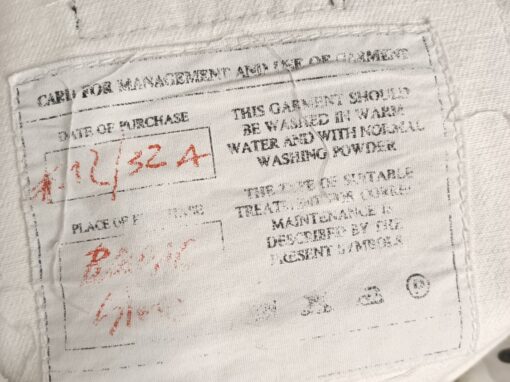 CARD FOR MANAGEMENT AND USE OF GARMENT
DATE OF PURCHASE
12/32 A
PLACE OF
THIS GARMENT SHOULD
BE WASHED IN WARM
WATER AND WITH NORMAL
WASHING POWDER
THE TYPE OF SUITABLE
TREATMENT FOR CORRECT
MAINTENANCE IS
DESCRIBED BY THE
PRESENT SYMBOLS
P